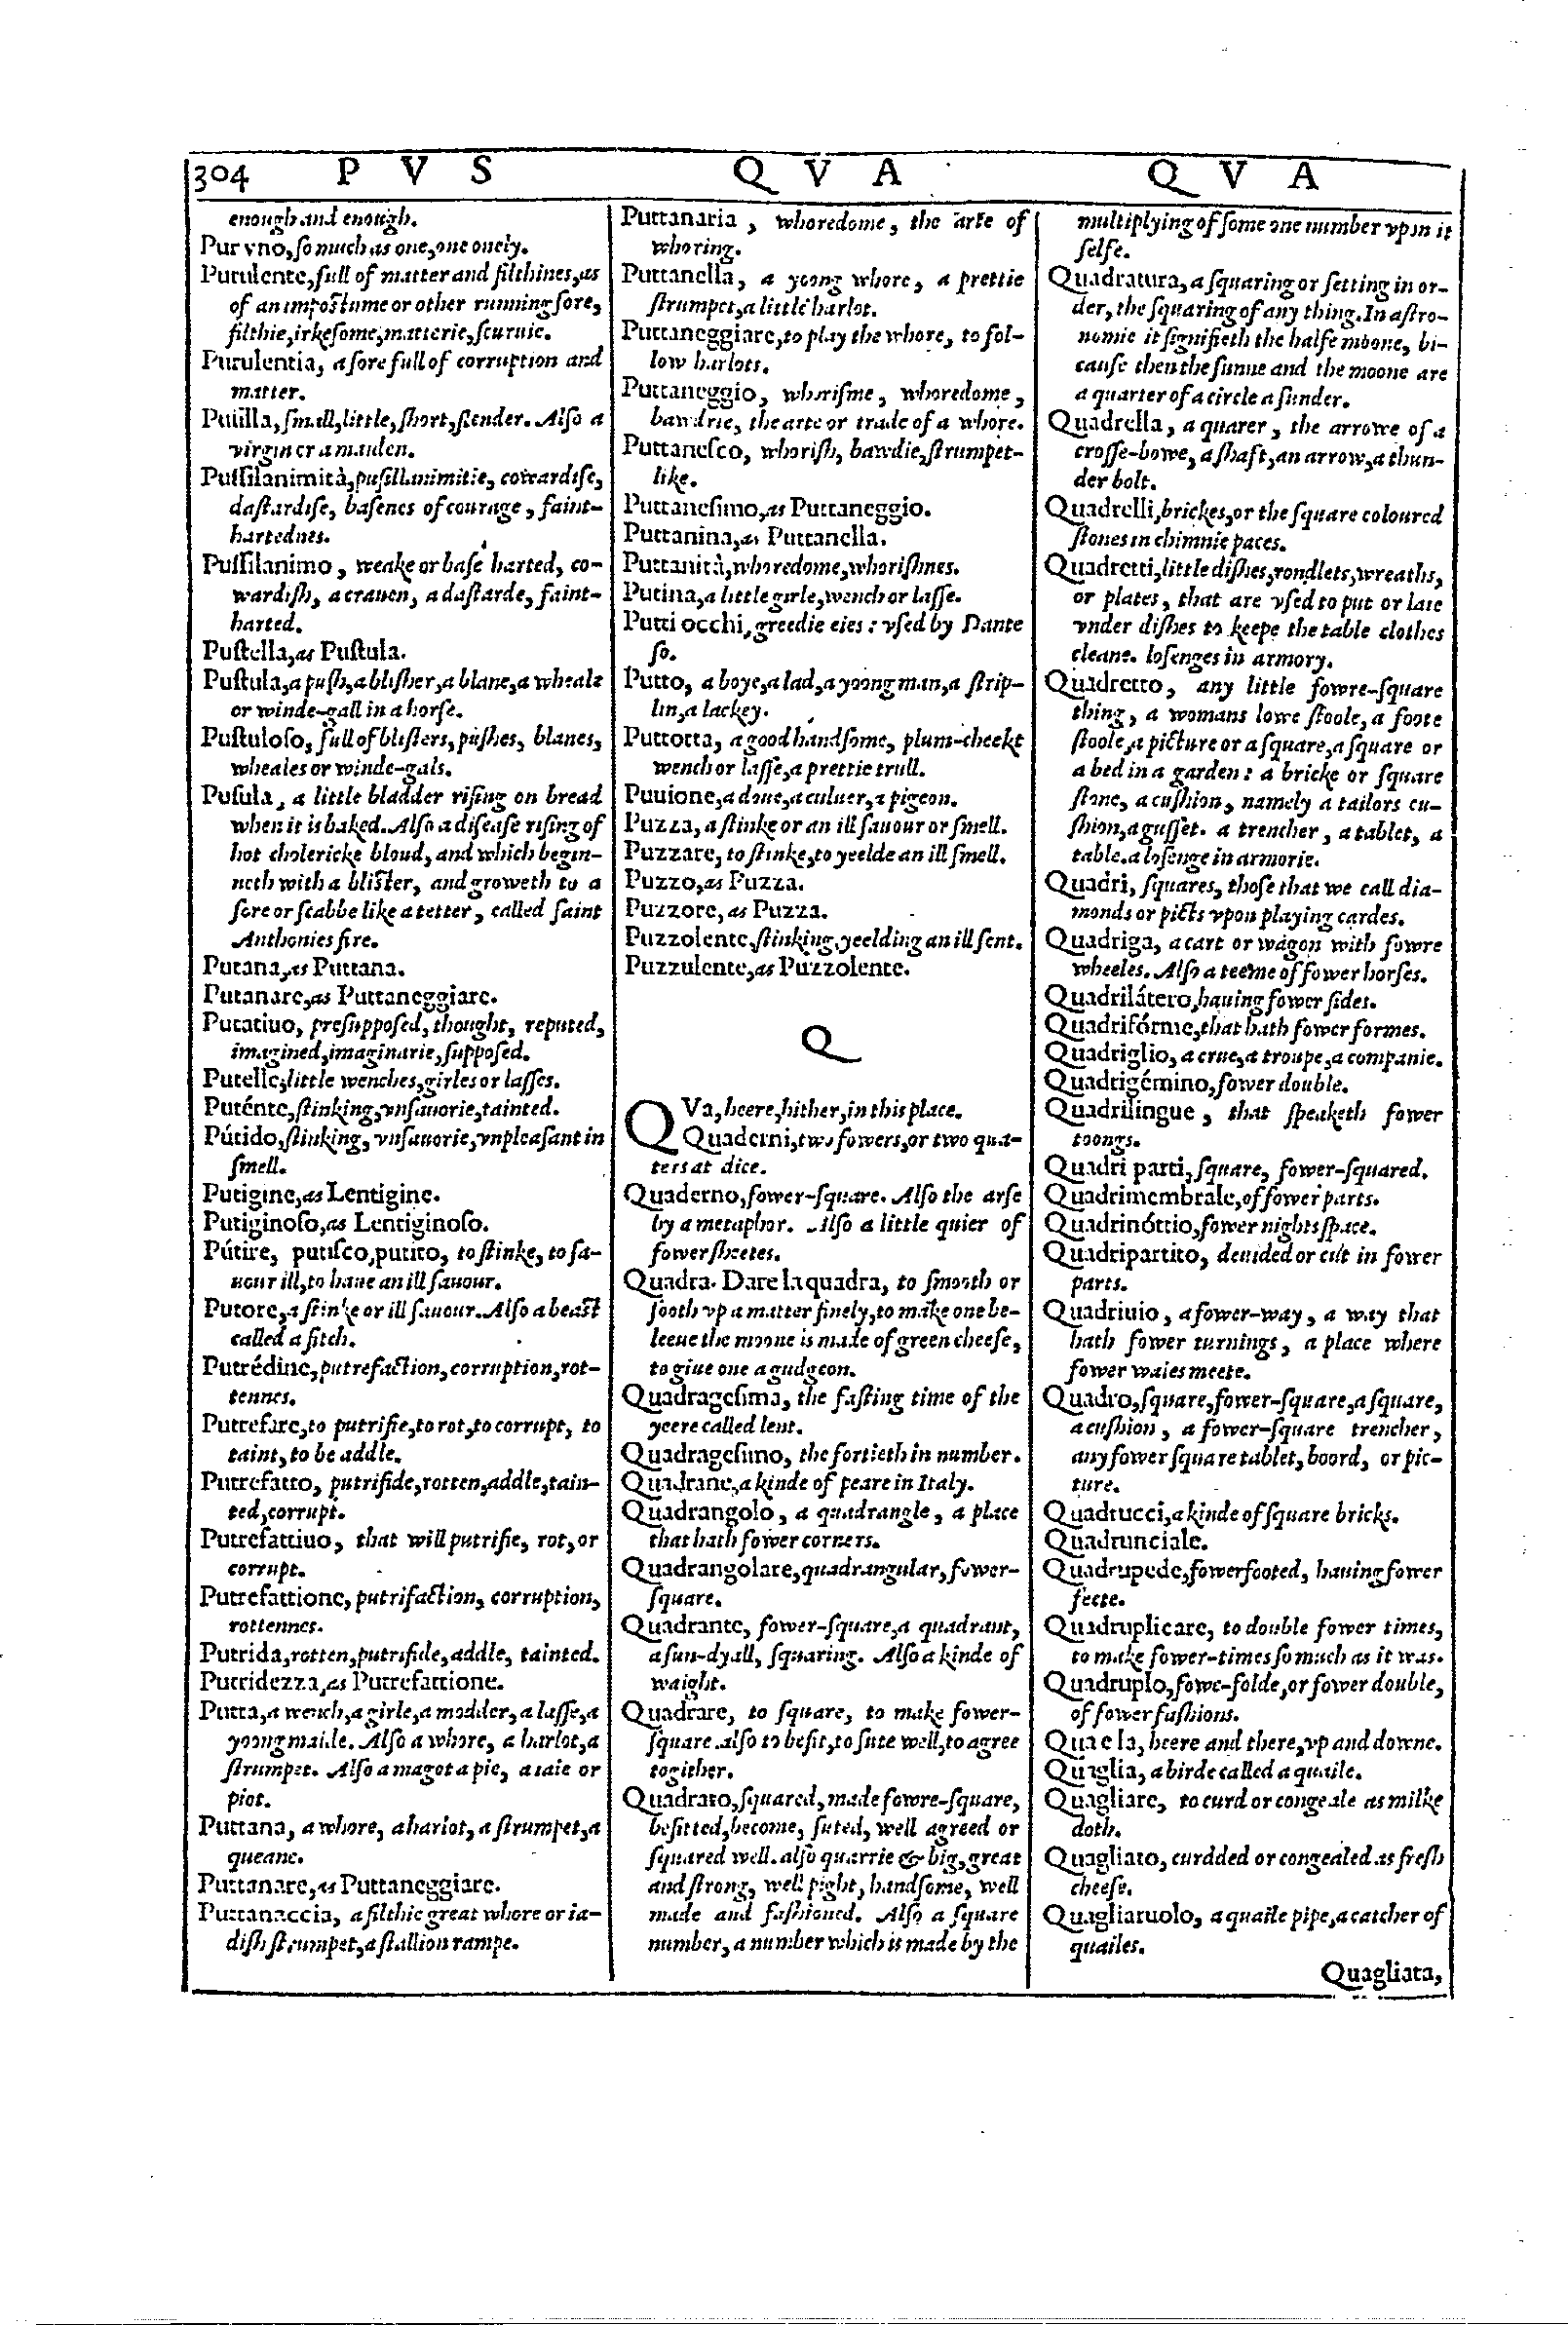 304 P V S Q V A Q V A
enough and enough.
Pur vno, ſo much as one, one onely.
Purulente, full of matter and filthines, as
of an impoſtume or other running ſore,
filthie, irkeſome, matterie, ſcuruie.
Purulentia, a ſore full of corruption and
matter.
Puſilla, ſmall, little, ſhort, ſlender. Alſo a
virgin or a maiden.
Puſſilanimità, puſillanimitie, cowardiſe,
daſtardiſe, baſenes of courage, faint-
hartednes.
Puſſilanimo, weake or baſe harted, co-
wardiſh, a crauen, a daſtarde, faint-
harted.
Puſtella, as Puſtula.
Puſtula, a puſh, a bliſter, a blane, a wheale
or winde-gall in a horſe.
Puſtuloſo, full of bliſters, puſhes, blanes,
wheales or winde-gals.
Puſula, a little bladder riſing on bread
when it is baked. Alſo a diſeaſe riſing of
hot cholericke bloud, and which begin-
neth with a bliſter, and groweth to a
ſore or ſcabbe like a tetter, called ſaint
Anthonies fire.
Putana, as Puttana.
Putanare, as Puttaneggiare.
Putatiuo, preſuppoſed, thought, reputed,
imagined, imaginarie, ſuppoſed.
Putelle, little wenches, girles or laſſes.
Puténte, ſtinking, vnſauorie, tainted.
Pútido, ſtinking, vnſauorie, vnpleaſant in
ſmell.
Putigine, as Lentigine.
Putiginoſo, as Lentiginoſo.
Pútire, putiſco, putito, to ſtinke, to ſa-
uour ill, to haue an ill ſauour.
Putore, a ſtinke or ill ſauour. Alſo a beaſt
called a fitch.
Putrédine, putrefaction, corruption, rot-
tennes.
Putrefare, to putrifie, to rot, to corrupt, to
taint, to be addle.
Putrefatto, putrifide, rotten, addle, tain-
ted, corrupt.
Putrefattiuo, that will putrifie, rot, or
corrupt.
Putrefattione, putrifaction, corruption,
rottennes.
Putrida, rotten, putrifide, addle, tainted.
Putridezza, as Putrefattione.
Putta, a wench, a girle, a modder, a laſſe, a
yoong maide. Alſo a whore, a harlot, a
ſtrumpet. Alſo a magot a pie, a iaie or
piot.
Puttana, a whore, a harlot, a ſtrumpet, a
queane.
Puttanare, as Puttaneggiare.
Puttanaccia, a filthie great whore or ia-
diſh ſtrumpet, a ſtallion rampe.
Puttanaria, whoredome, the arte of
whoring.
Puttanella, a yoong whore, a prettie
ſtrumpet, a little harlot.
Puttaneggiare, to play the whore, to fol-
low harlots.
Puttaneggio, whoriſme, whoredome,
bawdrie, the arte or trade of a whore.
Puttaneſco, whoriſh, bawdie, ſtrumpet-
like.
Puttaneſimo, as Puttaneggio.
Puttanina, as Puttanella.
Puttanità, whoredome, whoriſhnes.
Putina, a little girle, wench or laſſe.
Putti occhi, greedie eies: vſed by Dante
ſo.
Putto, a boye, a lad, a yoong man, a ſtrip-
lin, a lackey.
Puttotta, a good handſome, plum-cheekt
wench or laſſe, a prettie trull.
Puuione, a doue, a culuer, a pigeon.
Puzza, a ſtinke or an ill ſauour or ſmell.
Puzzare, to ſtinke, to yeelde an ill ſmell.
Puzzo, as Puzza.
Puzzore, as Puzza.
Puzzolente, ſtinking, yeelding an ill ſent.
Puzzulente, as Puzzolente.
Q
QVa, heere, hither, in this place.
Quaderni, two fowers, or two qua-
ters at dice.
Quaderno, fower-ſquare. Alſo the arſe
by a metaphor. Alſo a little quier of
fower ſheetes.
Quadra. Dare la quadra, to ſmooth or
ſooth vp a matter finely, to make one be-
leeue the moone is made of green cheeſe,
to giue one a gudgeon.
Quadrageſima, the faſting time of the
yeere called lent.
Quadrageſimo, the fortieth in number.
Quadrane, a kinde of peare in Italy.
Quadrangolo, a quadrangle, a place
that hath fower corners.
Quadrangolare, quadrangular, fower-
ſquare.
Quadrante, fower-ſquare, a quadrant,
a ſun-dyall, ſquaring. Alſo a kinde of
waight.
Quadrare, to ſquare, to make fower-
ſquare. alſo to befit, to ſute well, to agree
togither.
Quadrato, ſquared, made fowre-ſquare,
befitted, become, ſuted, well agreed or
ſquared well. alſo quarrie & big, great
and ſtrong, well pight, handſome, well
made and faſhioned. Alſo a ſquare
number, a number which is made by the
multiplying of ſome one number vpon it
ſelfe.
Quadratura, a ſquaring or ſetting in or-
der, the ſquaring of any thing. In aſtro-
nomie it ſignifieth the halfe moone, bi-
cauſe then the ſunne and the moone are
a quarter of a circle a ſunder.
Quadrella, a quarer, the arrowe of a
croſſe-bowe, a ſhaft, an arrow, a thun-
der bolt.
Quadrelli, brickes, or the ſquare coloured
ſtones in chimnie paces.
Quadretti, little diſhes, rondlets, wreaths,
or plates, that are vſed to put or laie
vnder diſhes to keepe the table clothes
cleane. loſenges in armory.
Quadretto, any little fowre-ſquare
thing, a womans lowe ſtoole, a foote
ſtoole, a picture or a ſquare, a ſquare or
a bed in a garden: a bricke or ſquare
ſtone, a cuſhion, namely a tailors cu-
ſhion, a guſſet. a trencher, a tablet, a
table. a loſenge in armorie.
Quadri, ſquares, thoſe that we call dia-
monds or picts vpon playing cardes.
Quadriga, a cart or wagon with fowre
wheeles. Alſo a teeme of fower horſes.
Quadrilátero, hauing fower ſides.
Quadrifórme, that hath fower formes.
Quadriglio, a crue, a troupe, a companie.
Quadrigémino, fower double.
Quadrilingue, that ſpeaketh fower
toongs.
Quadri parti, ſquare, fower-ſquared.
Quadrimembrale, of fower parts.
Quadrinóttio, fower nights ſpace.
Quadripartito, deuided or cut in fower
parts.
Quadriuio, a fower-way, a way that
hath fower turnings, a place where
fower waies meete.
Quadro, ſquare, fower-ſquare, a ſquare,
a cuſhion, a fower-ſquare trencher,
any fower ſquare tablet, boord, or pic-
ture.
Quadrucci, a kinde of ſquare bricks.
Quadrunciale.
Quadrupede, fowerfooted, hauing fower
feete.
Quadruplicare, to double fower times,
to make fower-times ſo much as it was.
Quadruplo, fowe-folde, or fower double,
of fower faſhions.
Qua e la, heere and there, vp and downe.
Quaglia, a birde called a quaile.
Quagliare, to curd or congeale as milke
doth.
Quagliato, curdded or congealed as freſh
cheeſe.
Quagliaruolo, a quaile pipe, a catcher of
quailes.
Quagliata,